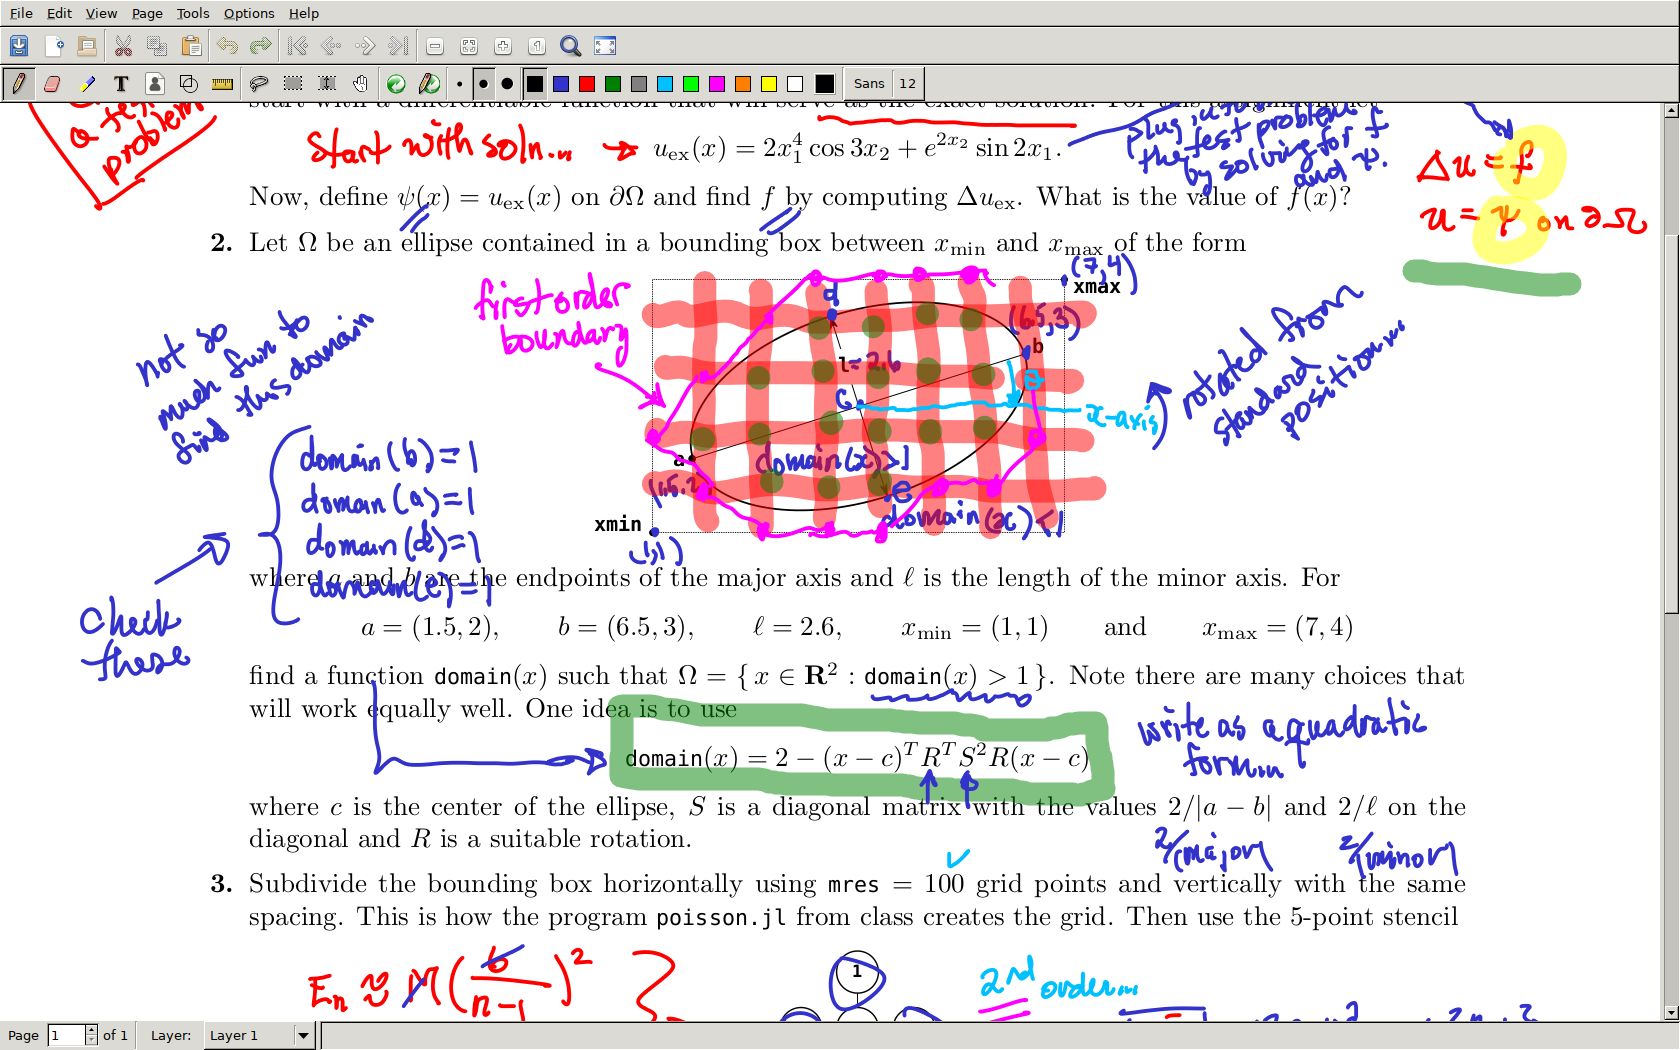 File Edit View Page Tools Options Help
Sans 12
a test
problem
start with a differentiable function that will serve as the exact solution. For this assignment let
Start with soln... → u_ex(x) = 2x_1^4 cos 3x_2 + e^{2x_2} sin 2x_1.
plug into
the test problem
by solving for f
and ψ.
Δu = f
u = ψ on ∂Ω
Now, define ψ(x) = u_ex(x) on ∂Ω and find f by computing Δu_ex. What is the value of f(x)?
2. Let Ω be an ellipse contained in a bounding box between x_min and x_max of the form
first order
boundary
(7,4)
xmax
d
(6.5,3)
b
l = 2.6
c
θ
x-axis
a
(1.5,2)
domain(x)>1
e
domain(x)<1
xmin
(1,1)
rotated from
standard
position...
not so
much fun to
find this domain
domain(b)=1
domain(a)=1
domain(d)=1
domain(e)=1
check
these
where a and b are the endpoints of the major axis and ℓ is the length of the minor axis. For
a = (1.5, 2), b = (6.5, 3), ℓ = 2.6, x_min = (1, 1) and x_max = (7, 4)
find a function domain(x) such that Ω = { x ∈ R^2 : domain(x) > 1 }. Note there are many choices that
will work equally well. One idea is to use
write as a quadratic
form...
domain(x) = 2 − (x − c)^T R^T S^2 R(x − c)
where c is the center of the ellipse, S is a diagonal matrix with the values 2/|a − b| and 2/ℓ on the
diagonal and R is a suitable rotation.
2/|major|
2/|minor|
3. Subdivide the bounding box horizontally using mres = 100 grid points and vertically with the same
spacing. This is how the program poisson.jl from class creates the grid. Then use the 5-point stencil
E_n ≈ M(6/(n-1))^2
1
2nd order...
Page 1 of 1 Layer: Layer 1